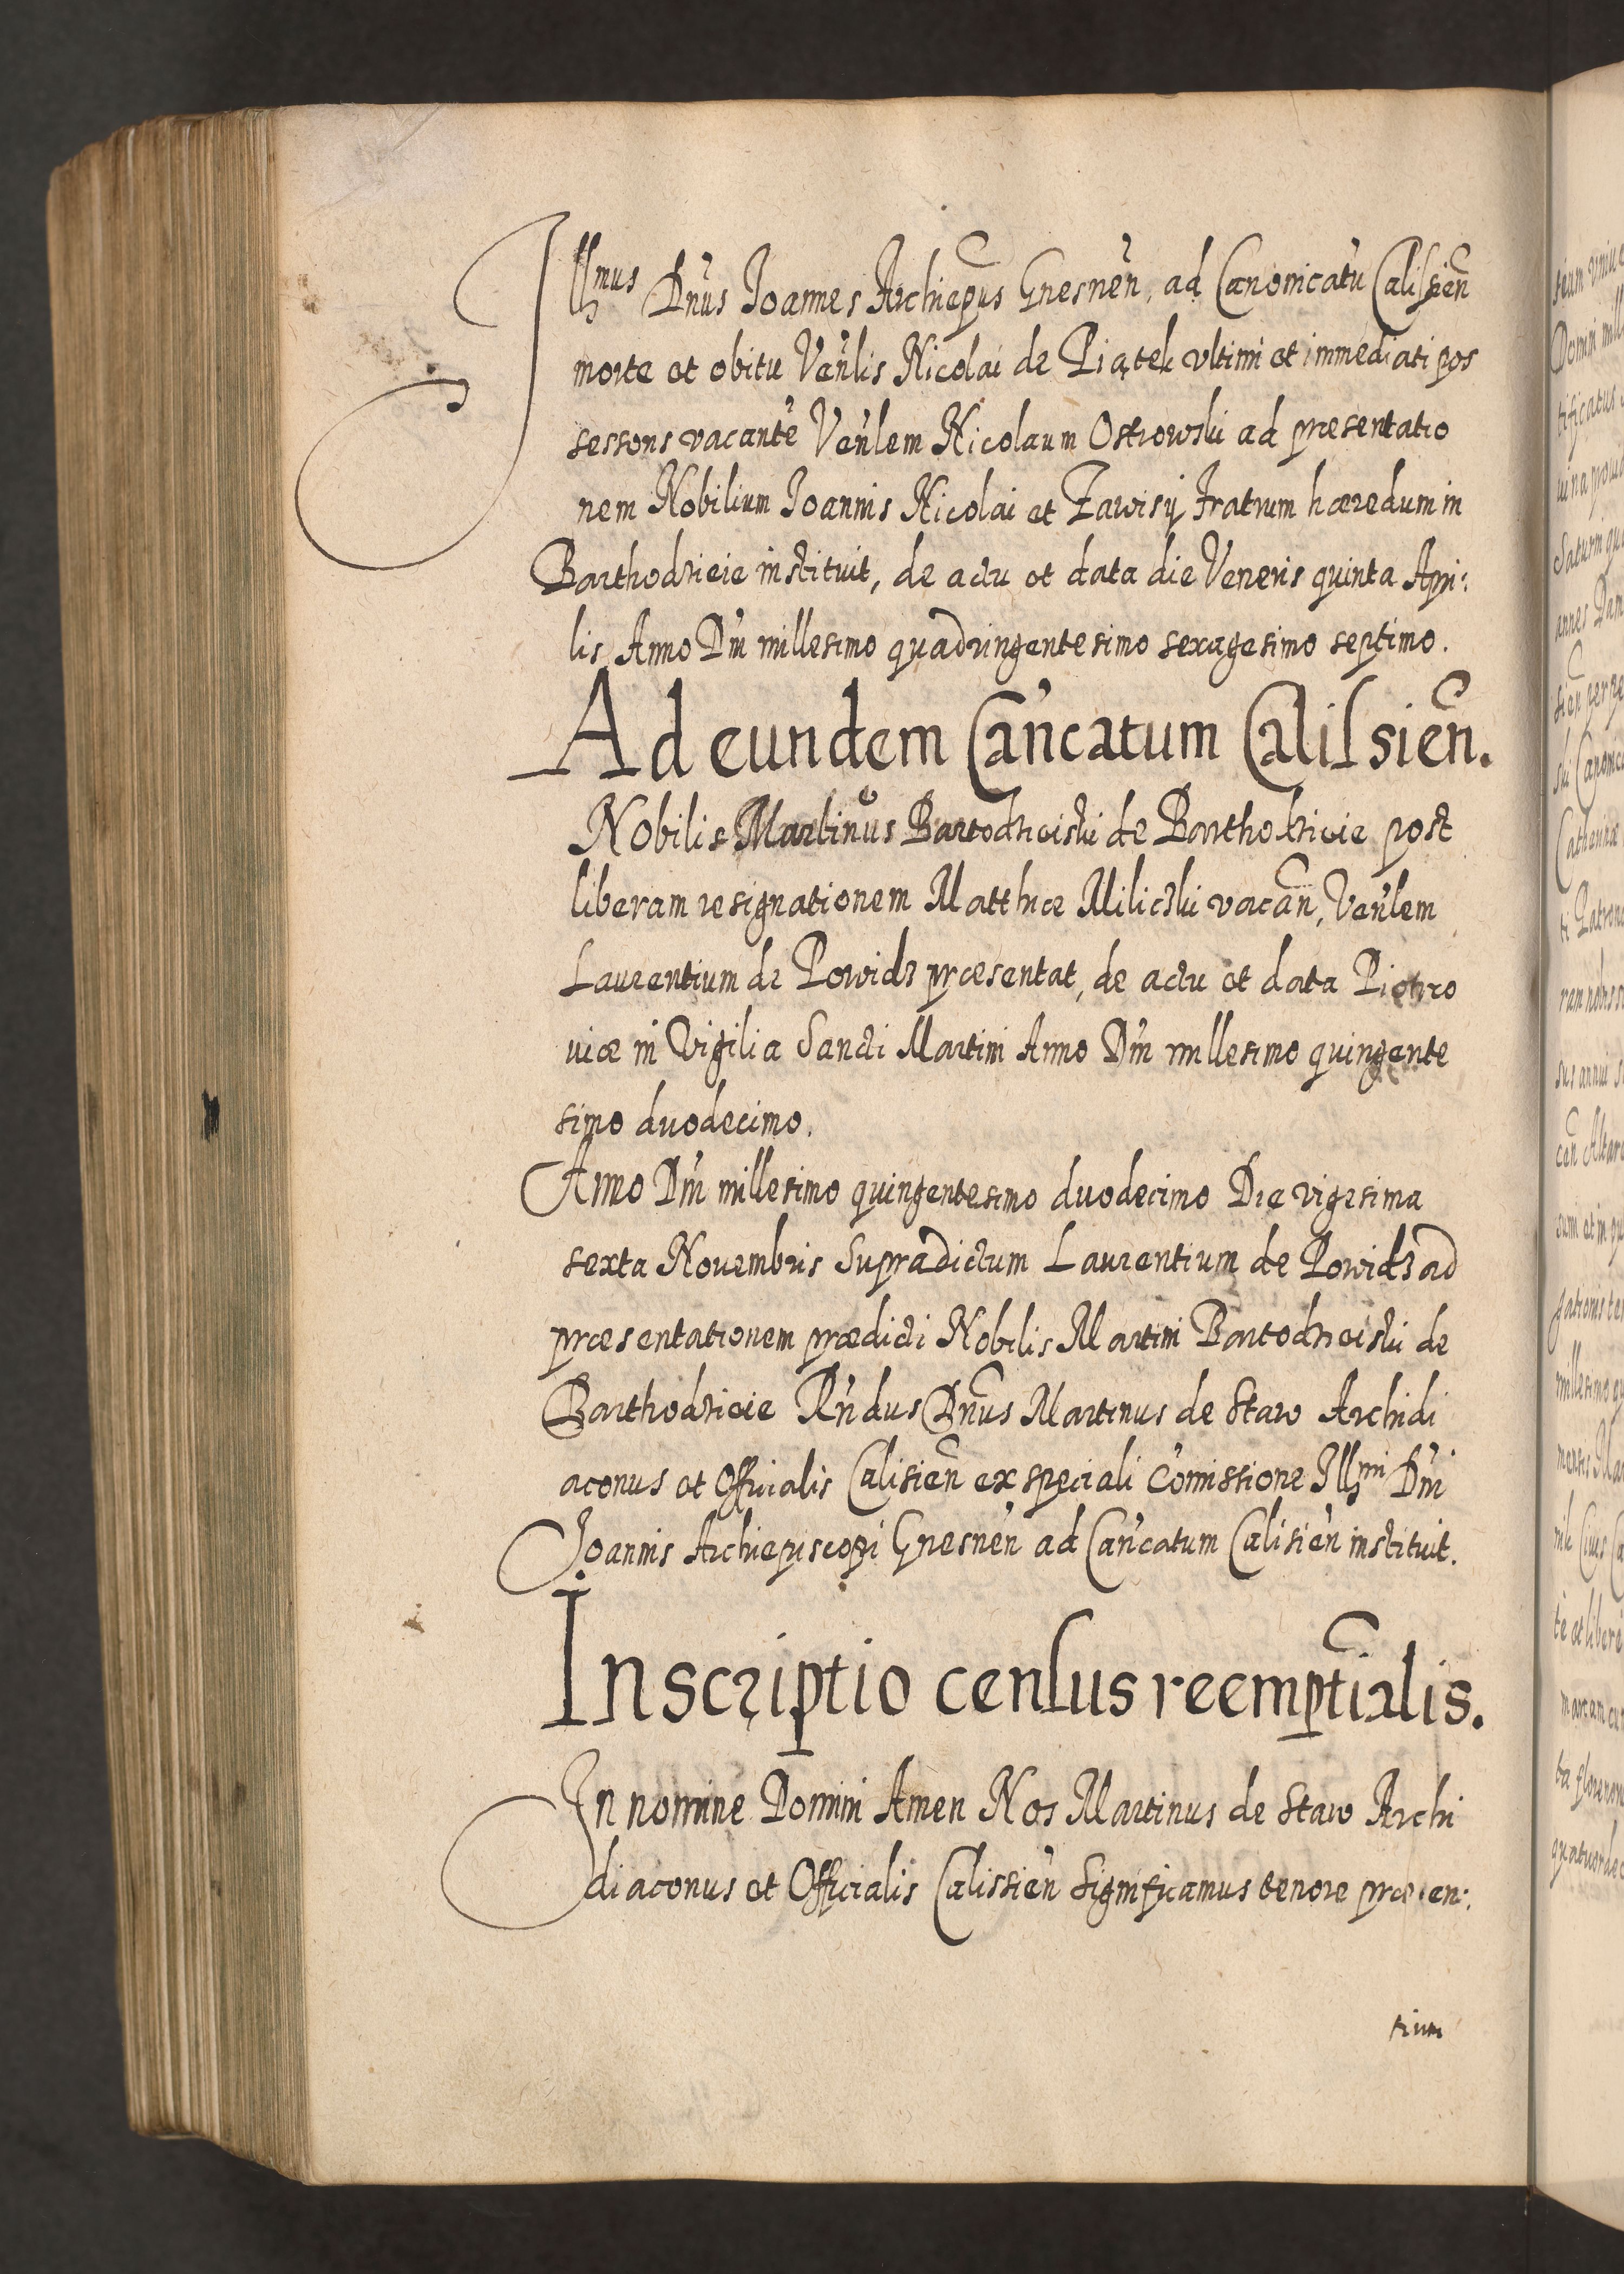 Illmus Dn̄us Joannes Archiep̄us Gnesnēn, ad Canonicatū Calissiēn
morte et obitu Vēnlis Nicolai de Piątek vltimi et immediati pos
sessoris vacantē Vēnlem Nicolaum Ostrowski ad præsentatio
nem Nobilium Joannis Nicolai et Zawisÿ Fratrum hæredum in
Barthodzieie instituit, de actu et data die Veneris quinta Apri:
lis Anno Dn̄i millesimo quadringentesimo sexagesimo septimo.
Ad eundem Cān̄catum Calissiēn.
Nobilis Martinus Bartodzieiski de Barthodzieie post
liberam resignationem Matthiæ Miliczki vacān, Vēnlem
Laurentium de Powidz præsentat, de actu et data Piotrco
uiæ in Vigilia Sancti Martini Anno Dn̄i millesimo quingente
simo duodecimo.
Anno Dn̄i millesimo quingentesimo duodecimo Die vigesima
sexta Nouembris Supradictum Laurentium de Powidz ad
præsentationem prædicti Nobilis Martini Bartodzieiski de
Barthodzieie Rn̄dus Dn̄us Martinus de Staw Archidi
aconus et Officialis Calisiēn ex speciali Com̄issione Illmi Dn̄i
Joannis Archiepiscopi Gnesnēn ad Cān̄catum Calisiēn instituit.
Inscriptio census reempt̄ialis.
In nomine Domini Amen Nos Martinus de Staw Archi
diaconus et Officialis Calissiēn Significamus tenore præsen:
tium